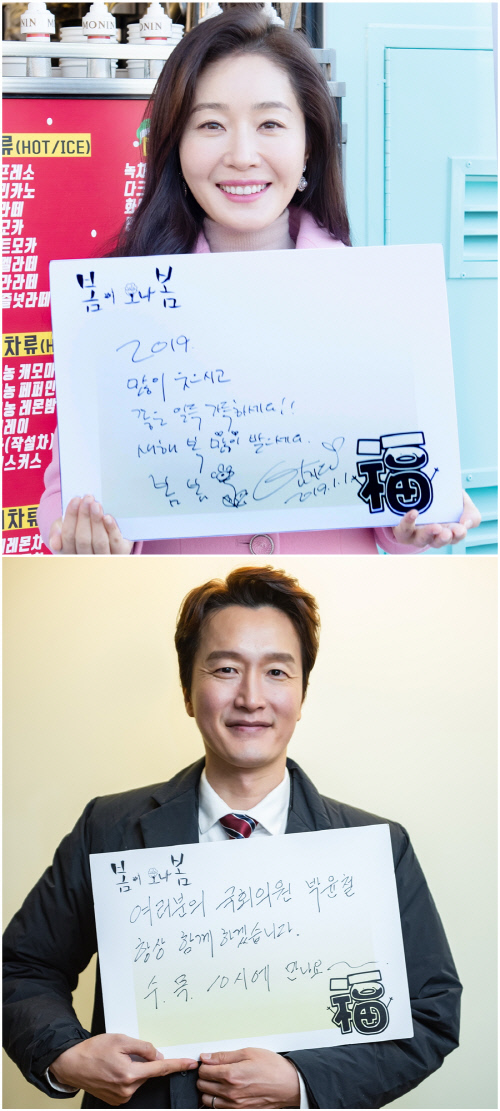 MONIN
MONIN
MONIN
류(HOT/ICE)
녹차
프레소
다크
리카노
라떼
모카
트모카
멜라떼
라라떼
즐넛라떼
차류(H
농 캐모마
농 페퍼민
농 레몬밤
레이
(작설차)
스키스
차류
레몬차
봄이 오나 봄
2019.
많이 웃으시고
꿈을 일듯 가득하세요!!
새해 복 많이 받으세요.
봄 봄
2019.1.1
福
봄이 오나 봄
여러분의 국회의원 박윤철
항상 함께 하겠습니다.
수. 목. 10시에 만나요~
福